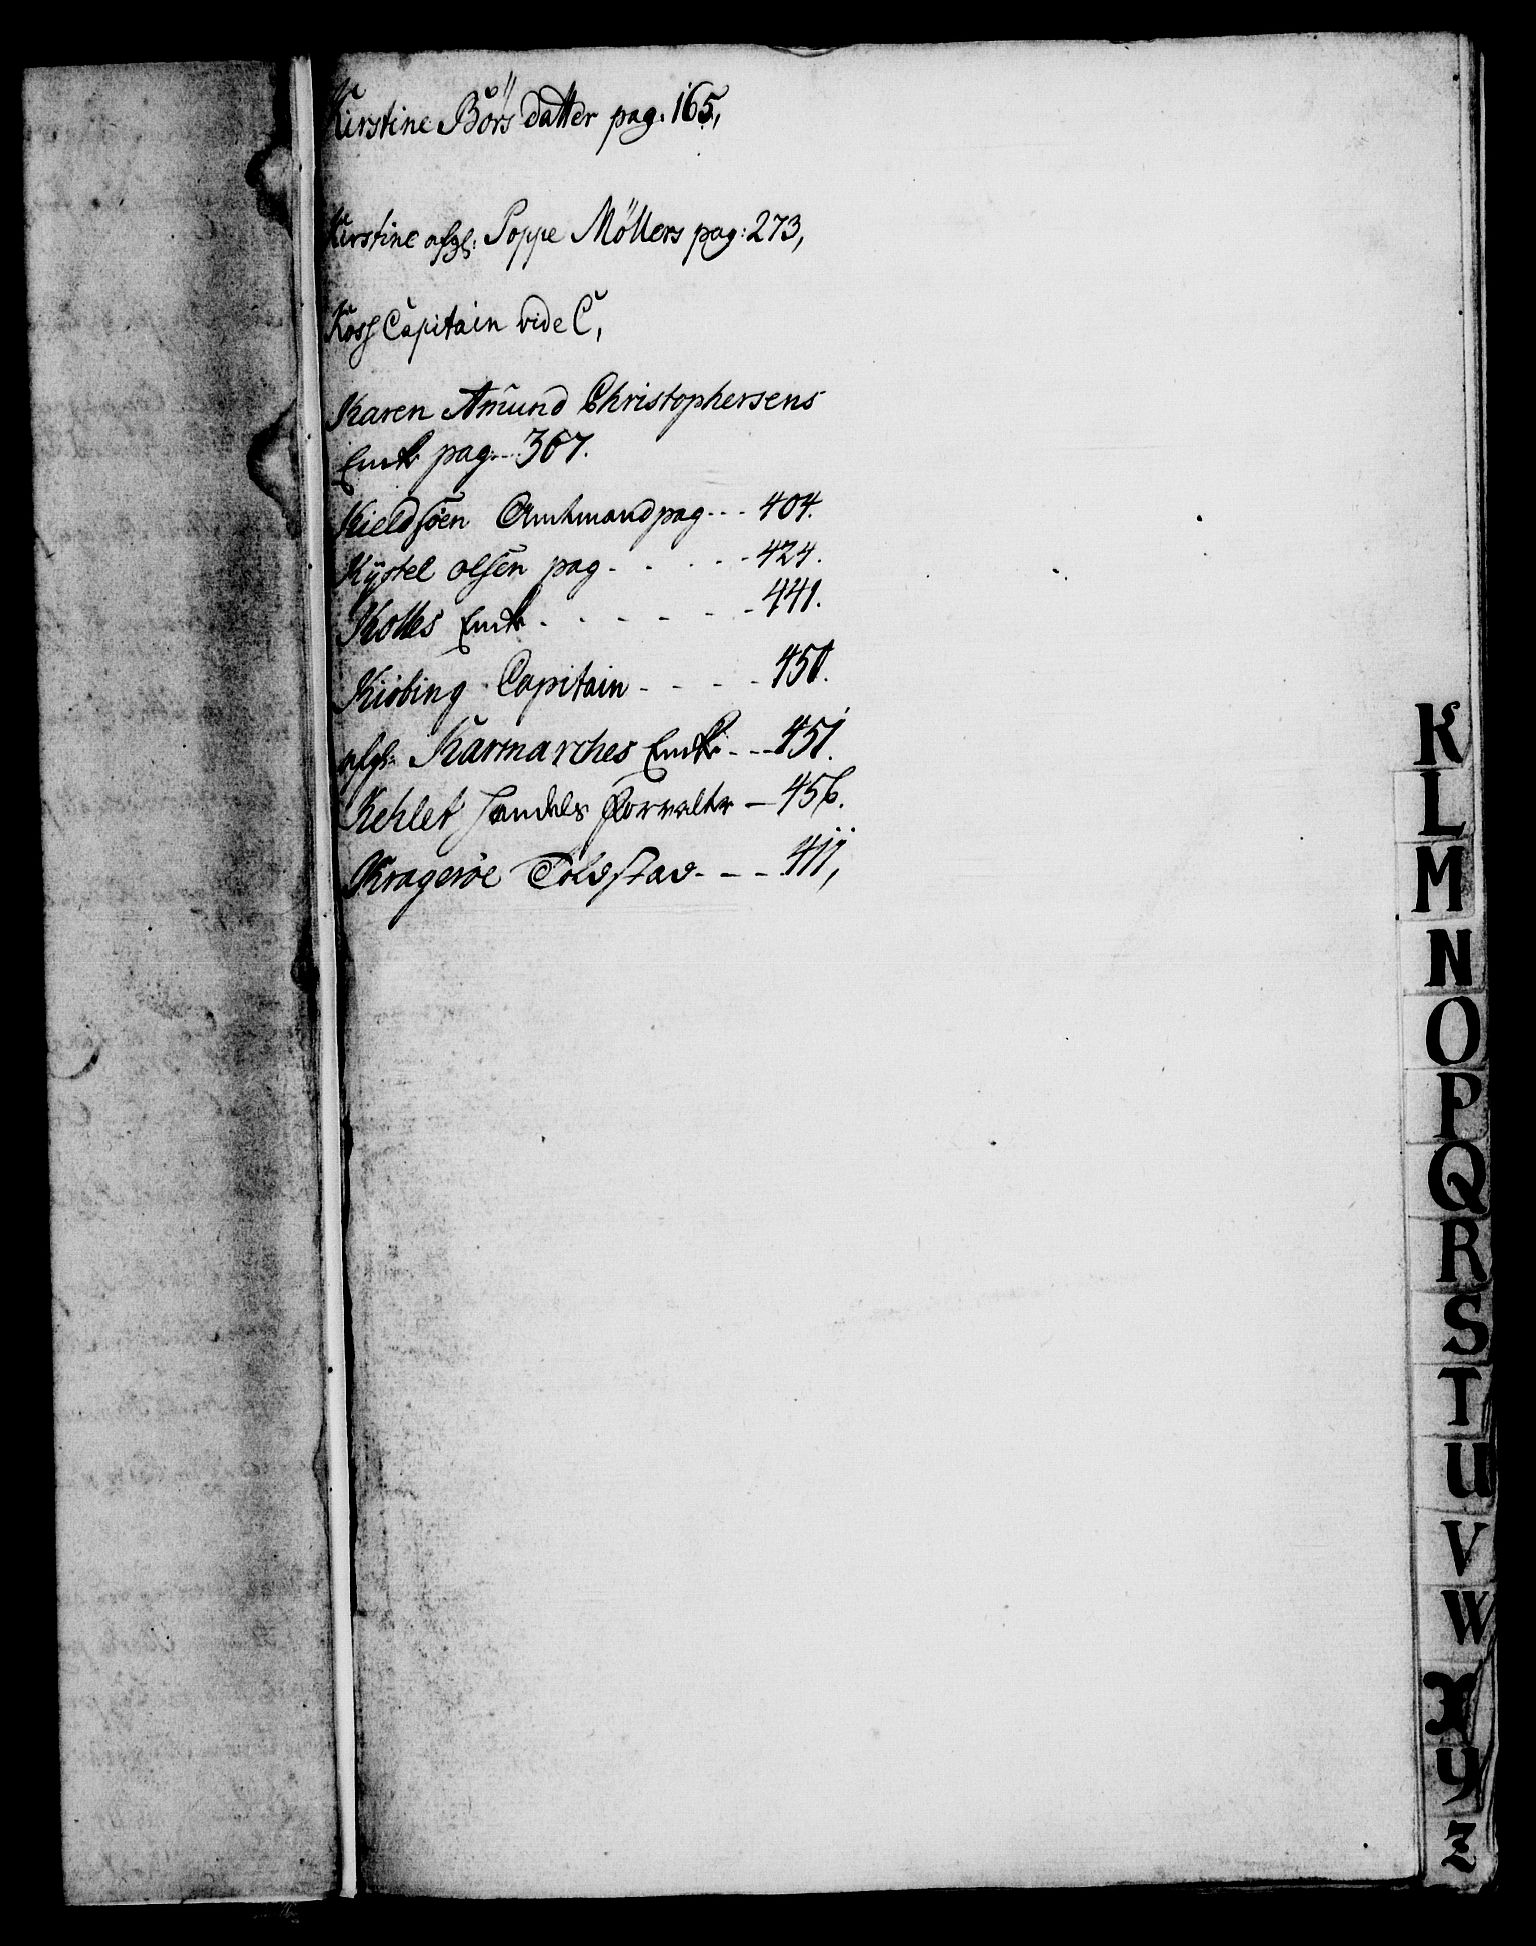 Kirstine Börs datter pag. 165,
Kirstine afgl: Poppe Möllers pag: 273,
Koss Capitain vide C,
Karen Amund Christophersens
Enke pag. - 367.
Kieldsøen Amtmand pag - - - 404.
Kystel olsen pag - - - - 424.
Kolles Enke - - - - - 441.
Kiøbing Capitain - - - - 450.
afgl: Karmarches Enke - - - 451.
Kehlet Handels Forvalter - 456.
Kragerøe Toldstad - - - 411,
K
L
M
N
O
P
Q
R
S
T
U
V
W
X
Y
Z